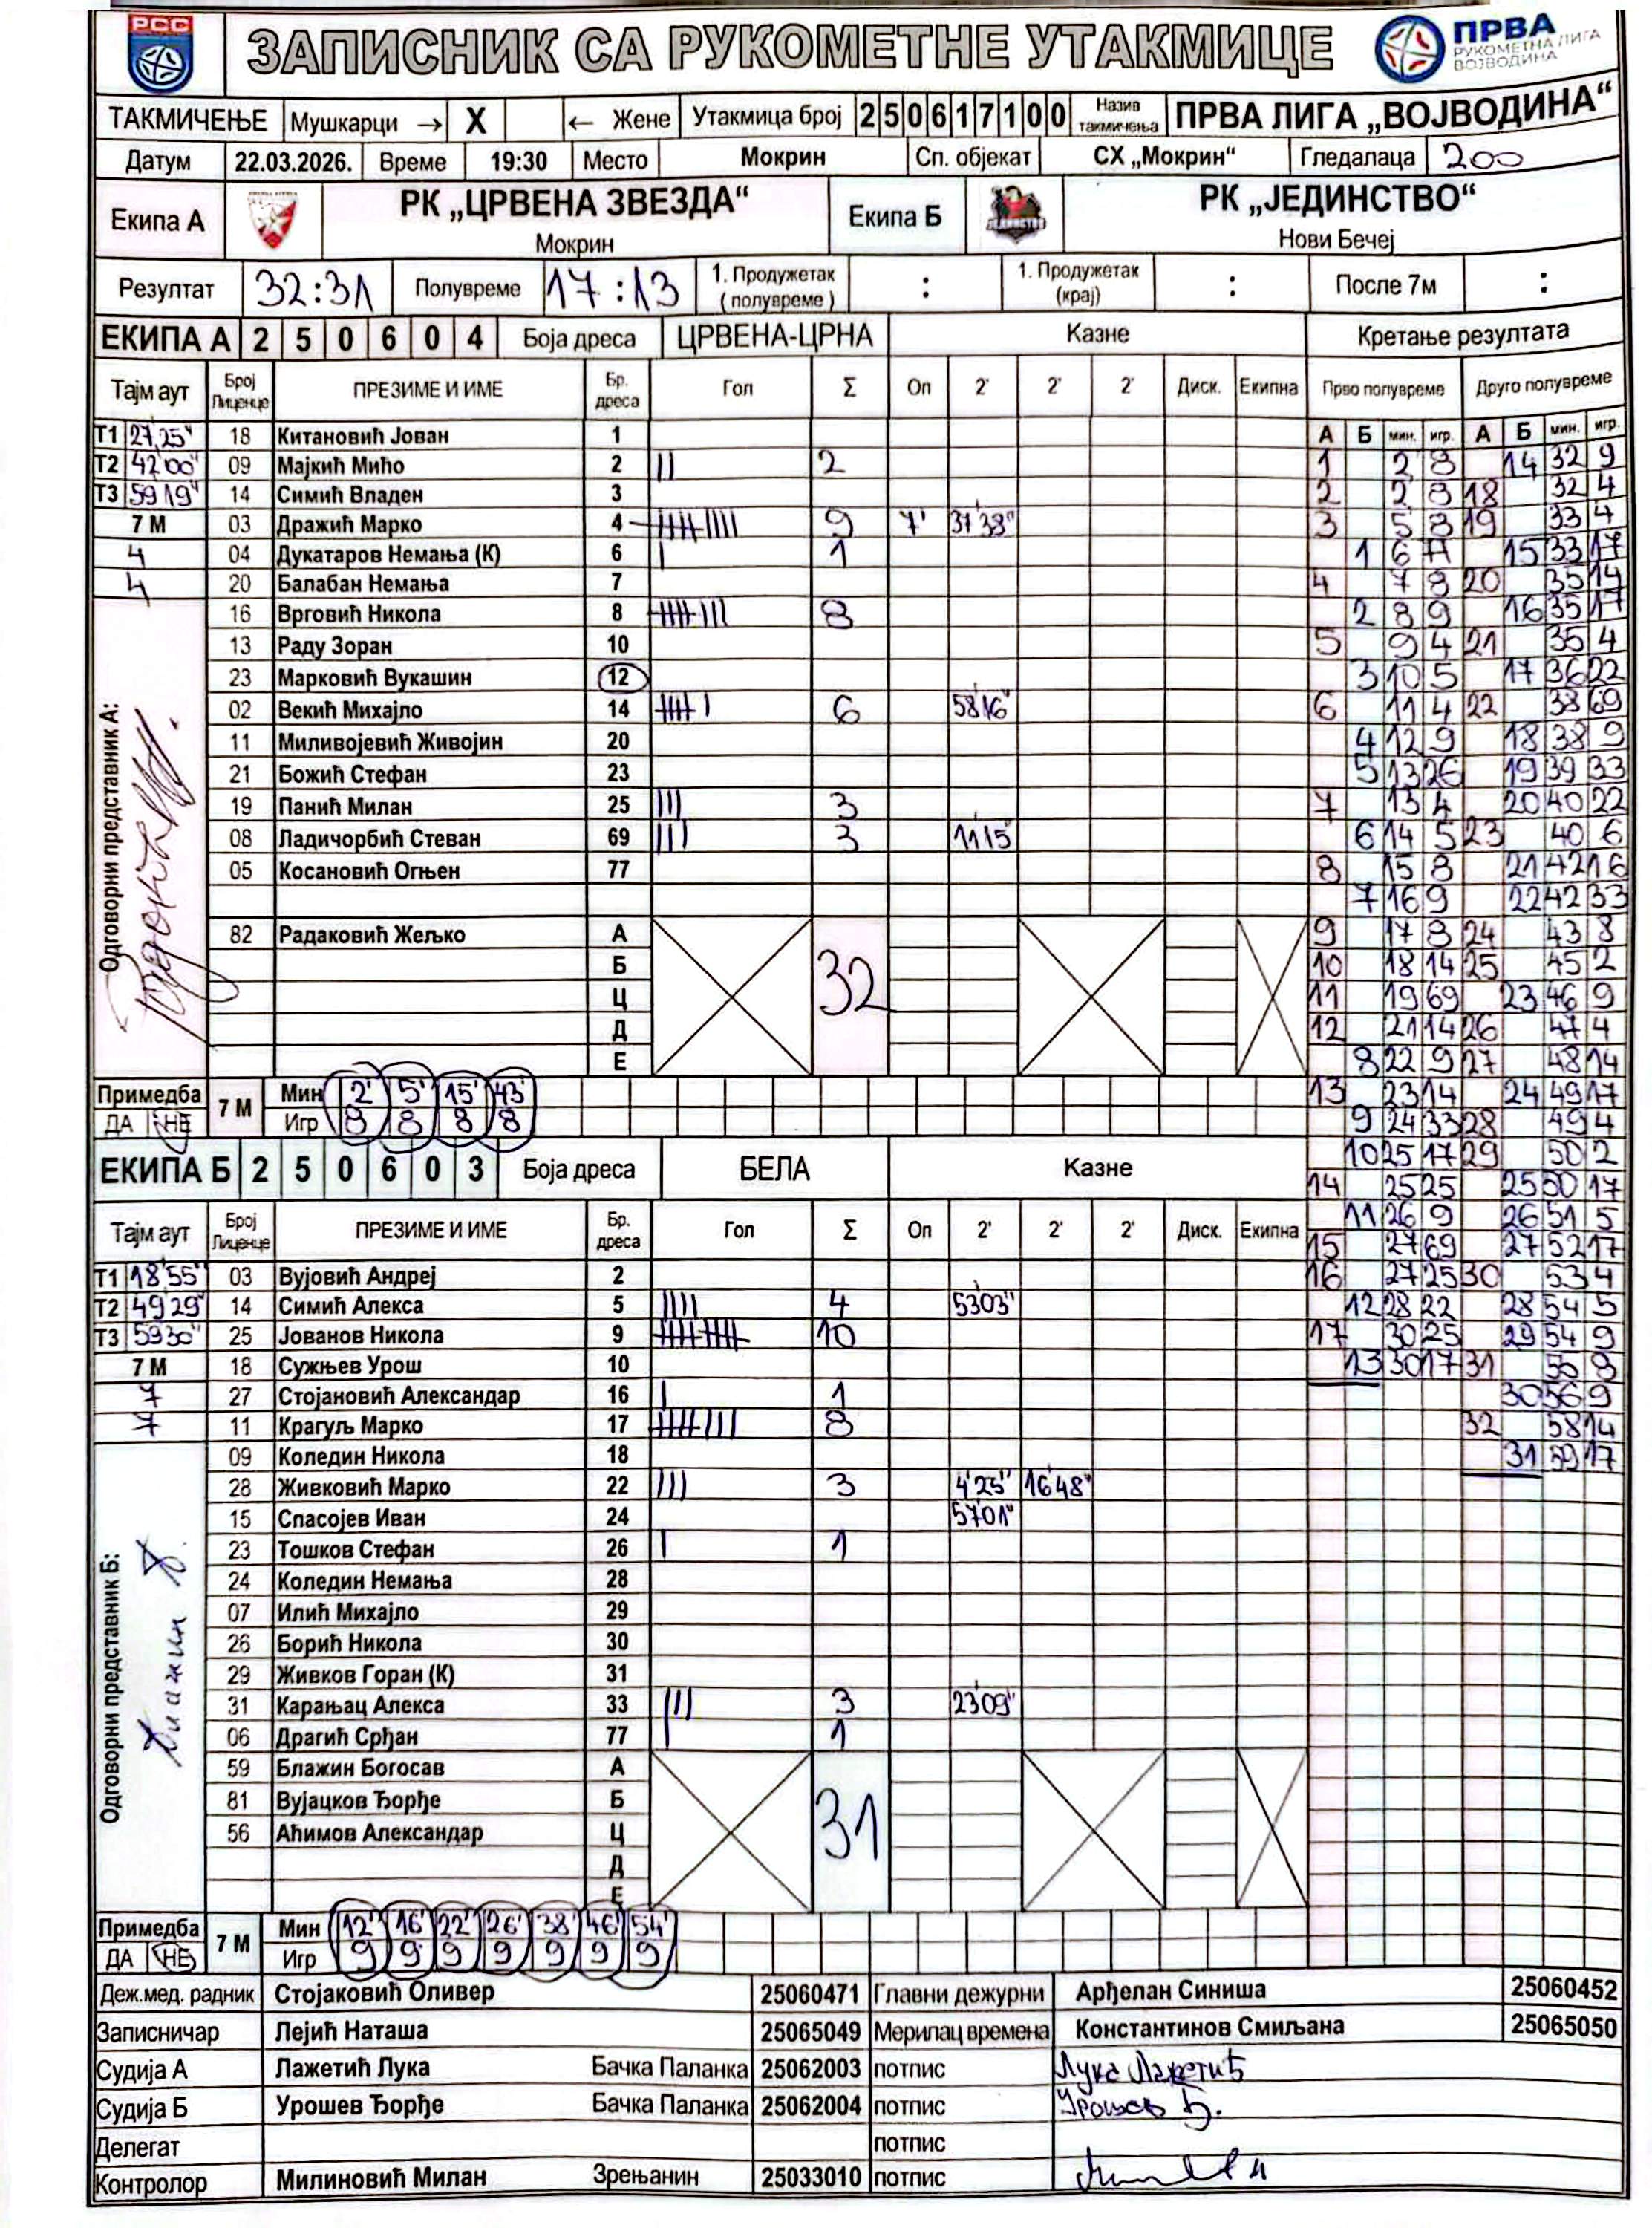 РСС
ЗАПИСНИК СА РУКОМЕТНЕ УТАКМИЦЕ
ПРВА
РУКОМЕТНА ЛИГА
ВОЈВОДИНА
ТАКМИЧЕЊЕ Мушкарци → X ← Жене Утакмица број 250617100 Назив такмичења ПРВА ЛИГА „ВОЈВОДИНА“
Датум 22.03.2026. Време 19:30 Место Мокрин Сп. објекат СХ „Мокрин“ Гледалаца 200
Екипа А РК „ЦРВЕНА ЗВЕЗДА“ Мокрин Екипа Б РК „ЈЕДИНСТВО“ Нови Бечеј
Резултат 32:31 Полувреме 17:13 1. Продужетак (полувреме) : 1. Продужетак (крај) : После 7м :
ЕКИПА А 2 5 0 6 0 4 Боја дреса ЦРВЕНА-ЦРНА Казне Кретање резултата
Тајм аут Број Лиценце ПРЕЗИМЕ И ИМЕ Бр. дреса Гол Σ Оп 2' 2' 2' Диск. Екипна Прво полувреме Друго полувреме
Т1 27,25" 18 Китановић Јован 1 А Б мин. игр. А Б мин. игр.
Т2 42'00" 09 Мајкић Мићо 2 || 2 1 2 8 14 32 9
Т3 59'19" 14 Симић Владен 3 2 2 8 18 32 4
7 М 03 Дражић Марко 4 9 7' 37'38" 3 5 8 19 33 4
4 04 Дукатаров Немања (К) 6 | 1 1 6 15 33 17
4 20 Балабан Немања 7 4 7 8 20 35 14
16 Врговић Никола 8 8 2 8 9 16 35 17
13 Раду Зоран 10 5 9 4 21 35 4
23 Марковић Вукашин 12 3 10 5 17 36 22
02 Векић Михајло 14 6 58'16" 6 11 4 22 38 69
11 Миливојевић Живојин 20 4 12 9 18 38 9
21 Божић Стефан 23 5 13 26 19 39 33
19 Панић Милан 25 ||| 3 7 13 4 20 40 22
08 Ладичорбић Стеван 69 ||| 3 11'15" 6 14 5 23 40 6
05 Косановић Огњен 77 8 15 8 21 42 16
7 16 9 22 42 33
82 Радаковић Жељко А 32 9 17 8 24 43 8
Б 10 18 14 25 45 2
Ц 11 19 69 23 46 9
Д 12 21 14 26 47 4
Е 8 22 9 27 48 14
Одговорни представник А:
Примедба 7 М Мин 2' 5' 15' 43' 13 23 14 24 49 17
ДА НЕ Игр 8 8 8 8 9 24 33 28 49 4
ЕКИПА Б 2 5 0 6 0 3 Боја дреса БЕЛА Казне 10 25 17 29 50 2
14 25 25 25 50 17
Тајм аут Број Лиценце ПРЕЗИМЕ И ИМЕ Бр. дреса Гол Σ Оп 2' 2' 2' Диск. Екипна 11 26 9 26 51 5
15 27 69 27 52 17
Т1 18'55" 03 Вујовић Андреј 2 16 27 25 30 53 4
Т2 49'29" 14 Симић Алекса 5 |||| 4 53'03" 12 28 22 28 54 5
Т3 59'30" 25 Јованов Никола 9 10 17 30 25 29 54 9
7 М 18 Сужњев Урош 10 13 30 17 31 8
7 27 Стојановић Александар 16 | 1 30 56 9
7 11 Крагуљ Марко 17 8 32 58 14
09 Коледин Никола 18 31 59 17
28 Живковић Марко 22 ||| 3 4'25" 16'48"
15 Спасојев Иван 24 57'01"
23 Тошков Стефан 26 | 1
24 Коледин Немања 28
07 Илић Михајло 29
26 Борић Никола 30
29 Живков Горан (К) 31
31 Карањац Алекса 33 ||| 3 23'09"
06 Драгић Срђан 77 | 1
59 Блажин Богосав А 31
81 Вујацков Ђорђе Б
56 Аћимов Александар Ц
Д
Е
Одговорни представник Б:
Примедба 7 М Мин 12' 16' 22' 26' 38' 46' 54'
ДА НЕ Игр 9 9 9 9 9 9 9
Деж.мед. радник Стојаковић Оливер 25060471 Главни дежурни Арђелан Синиша 25060452
Записничар Лејић Наташа 25065049 Мерилац времена Константинов Смиљана 25065050
Судија А Лажетић Лука Бачка Паланка 25062003 потпис Лука Лажетић
Судија Б Урошев Ђорђе Бачка Паланка 25062004 потпис Урошев Ђ.
Делегат потпис
Контролор Милиновић Милан Зрењанин 25033010 потпис